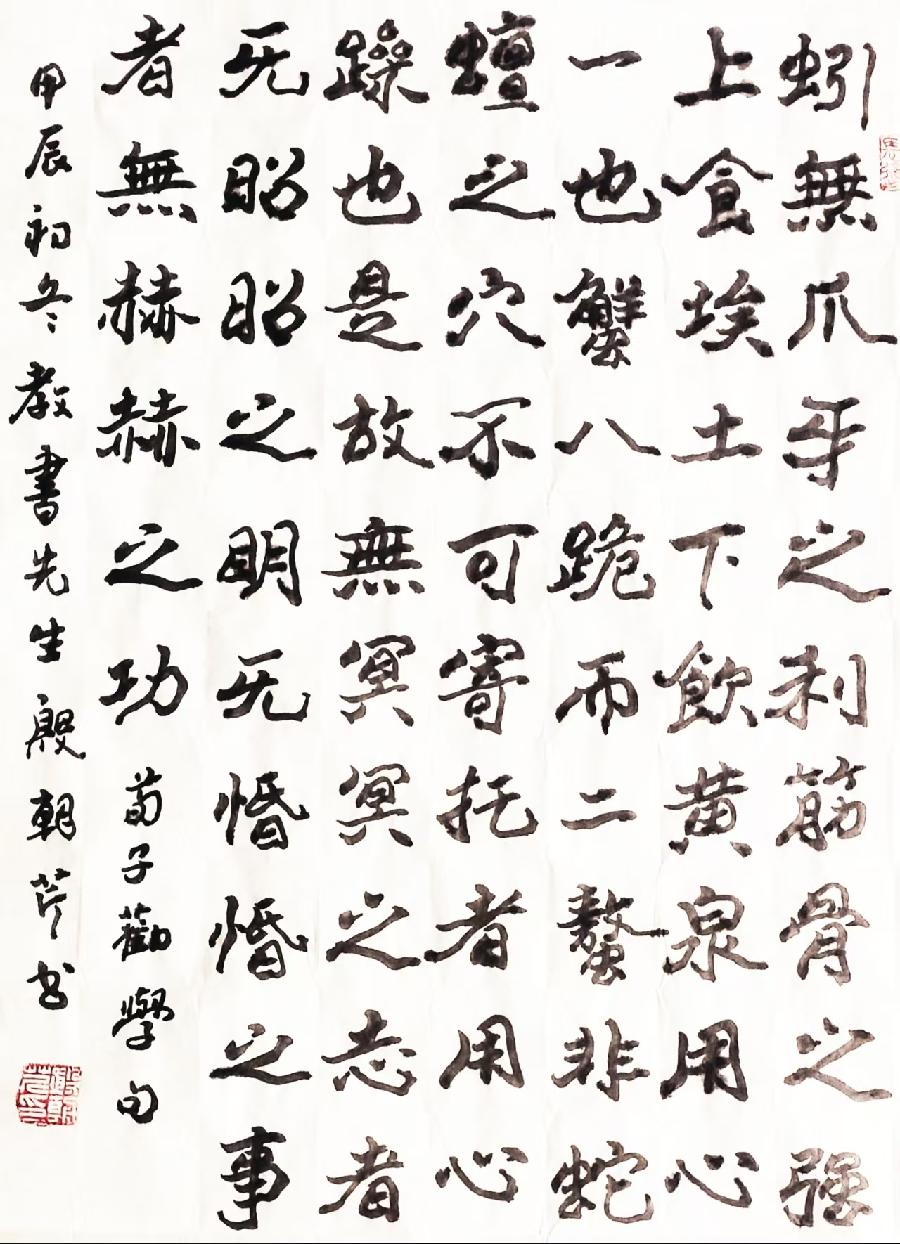 蚓無爪牙之利筋骨之强
上食埃土下飲黄泉用心
一也蟹八跪而二螯非蛇
蟺之穴不可寄托者用心
躁也是故無冥冥之志者
无昭昭之明无惛惛之事
者無赫赫之功 荀子勸學句
甲辰初冬教書先生殷朝芹书